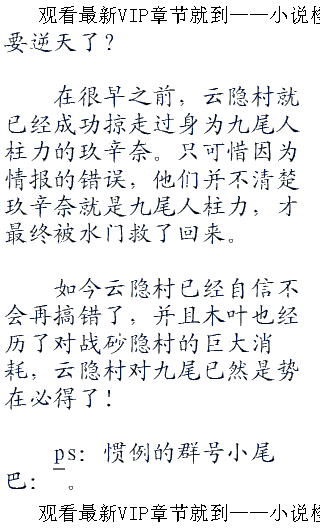 观看最新VIP章节就到——小说
要逆天了？
在很早之前，云隐村就
已经成功掠走过身为九尾人
柱力的玖辛奈。只可惜因为
情报的错误，他们并不清楚
玖辛奈就是九尾人柱力，才
最终被水门救了回来。
如今云隐村已经自信不
会再搞错了，并且木叶也经
历了对战砂隐村的巨大消
耗，云隐村对九尾已然是势
在必得了！
ps：惯例的群号小尾
巴： 。
观看最新VIP章节就到——小说